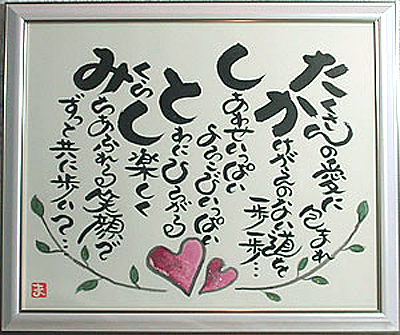 たくさんの愛に包まれ
かけがえのない道を
一歩一歩…
しあわせいっぱい
よろこびいっぱい
とわにひろがる
くらし楽しく
みちあふれる笑顔で
ずっと共に歩いて…
ま